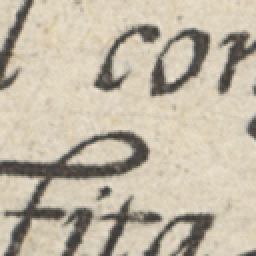 l cor
Fita